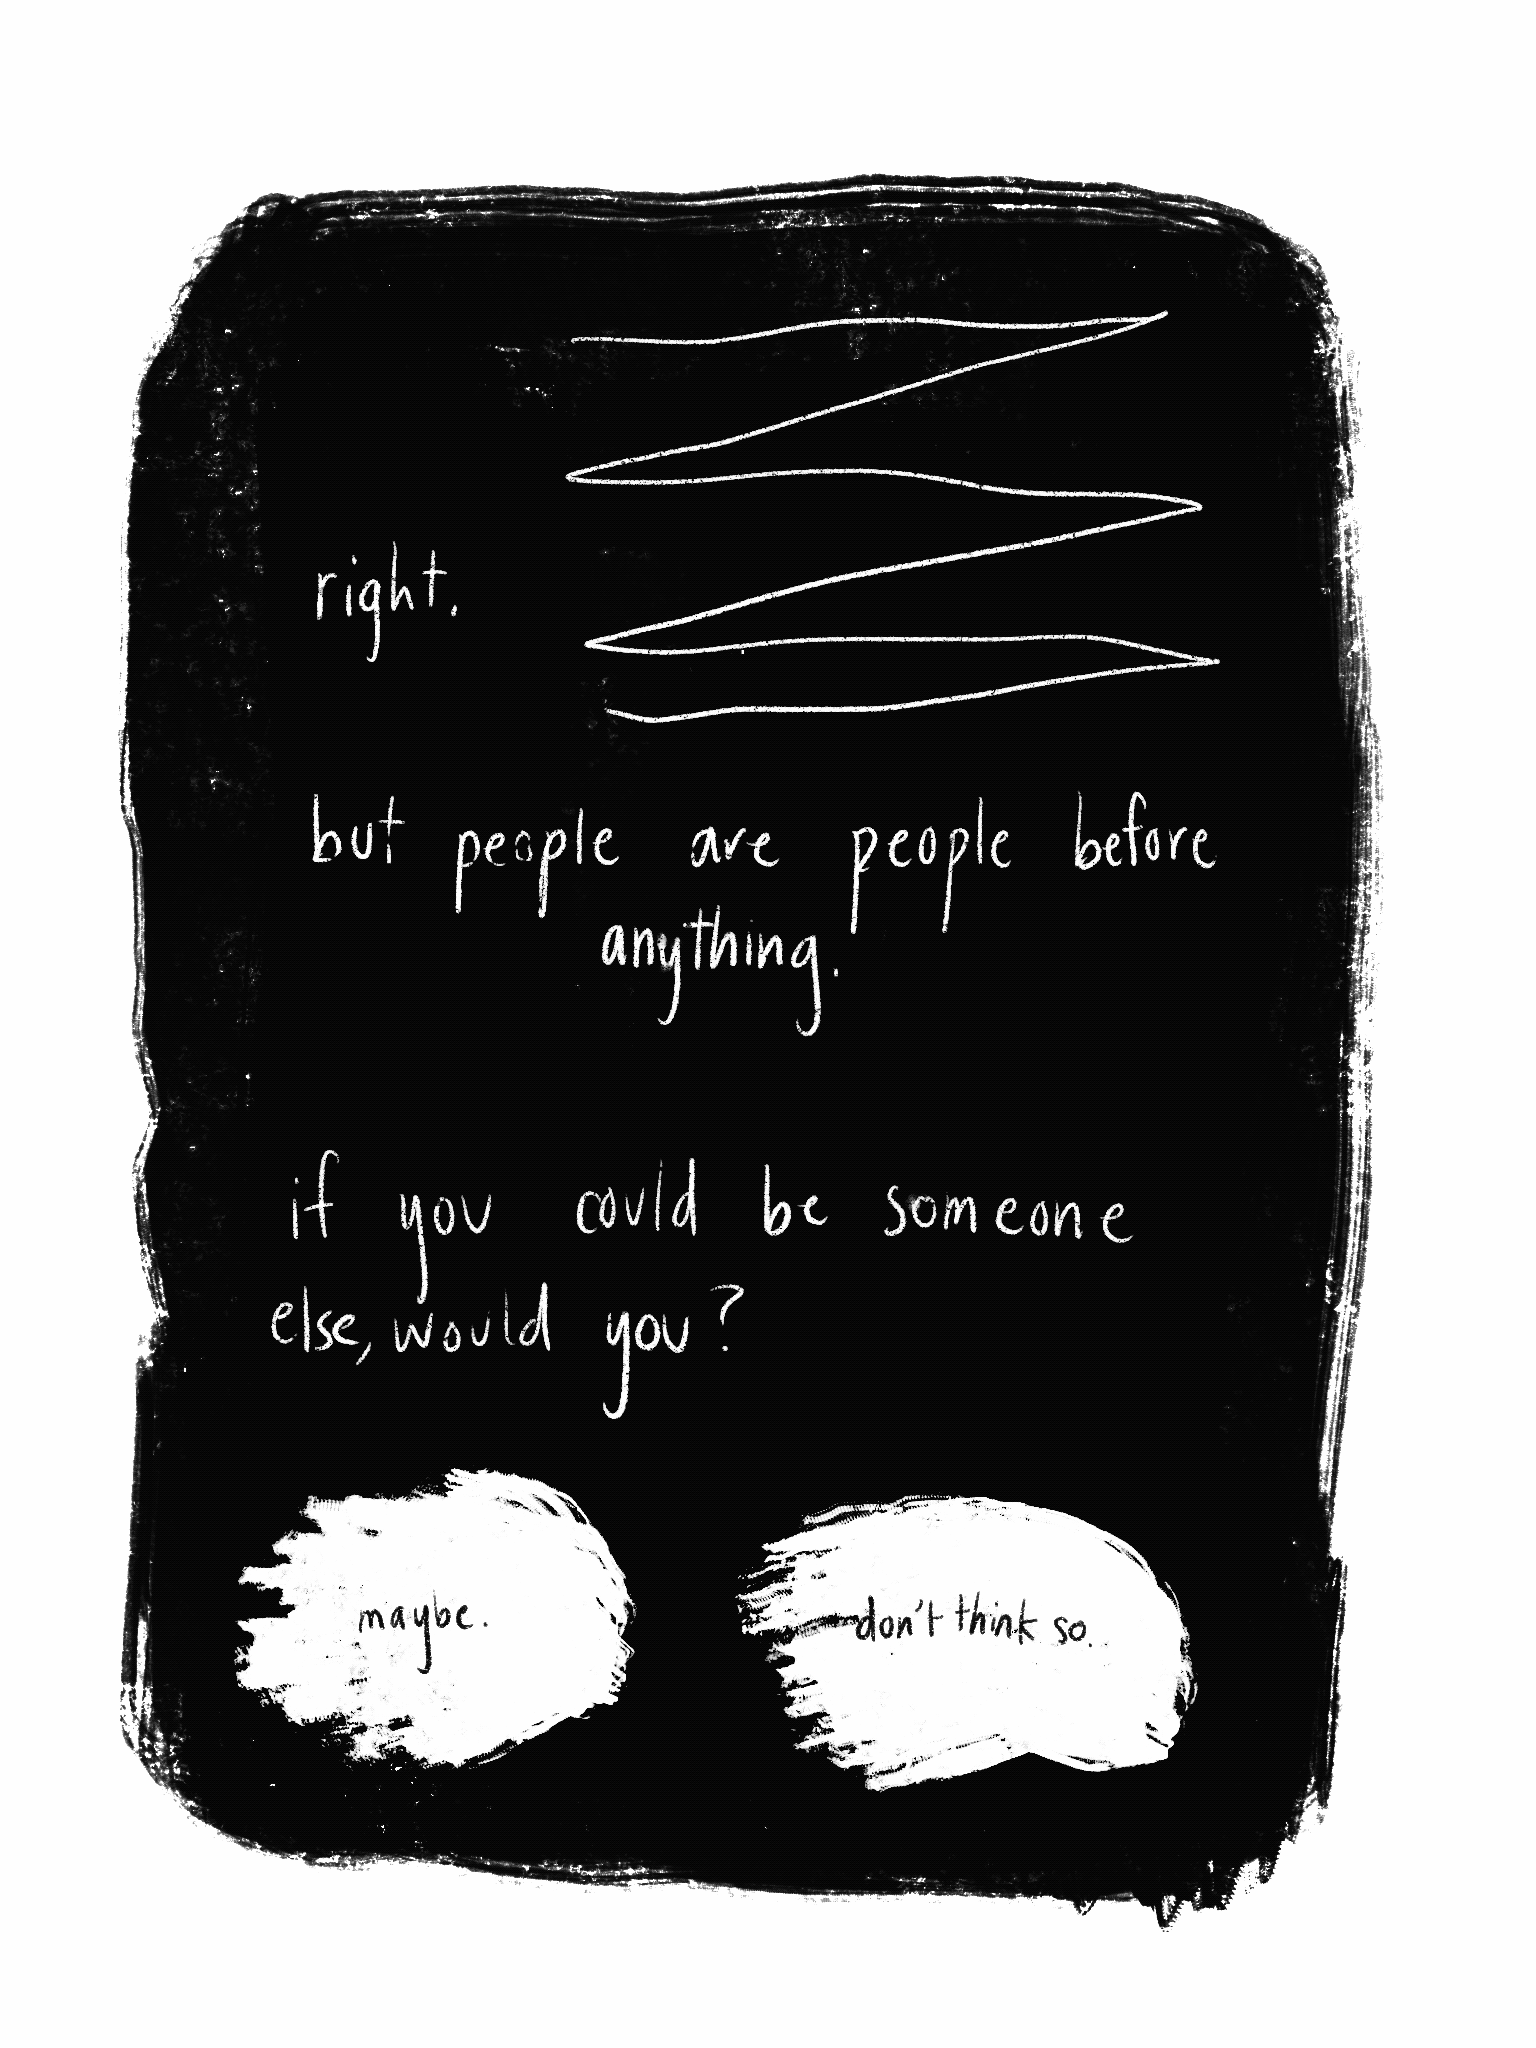 right.
but people are people before
anything.
if you could be someone
else, would you?
maybe.
don't think so.